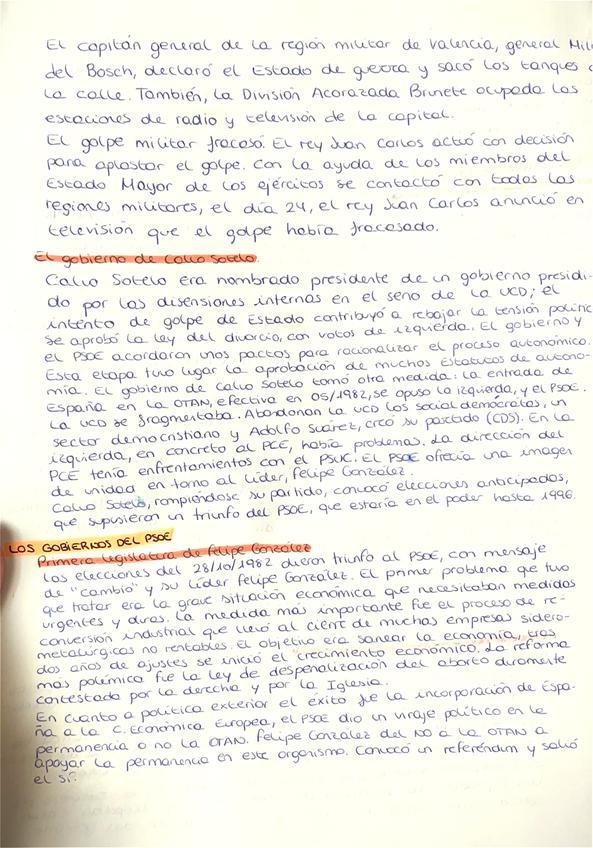 El capitán general de la región militar de Valencia, general Mil
del Bosch, declaró el Estado de guerra y sacó los tanques a
la calle. También, la División Acorazada Brunete ocupada las
estaciones de radio y televisión de la capital.
El golpe militar fracasó. El rey Juan Carlos actuó con decisión
para aplastar el golpe. Con la ayuda de los miembros del
Estado Mayor de los ejércitos se contactó con todas las
regiones militares, el día 24, el rey Juan Carlos anunció en
televisión que el golpe había fracasado.
El gobierno de Calvo Sotelo.
Calvo Sotelo era nombrado presidente de un gobierno presidi-
do por las disensiones internas en el seno de la UCD; el
intento de golpe de Estado contribuyó a rebajar la tensión política
se aprobó la ley del divorcio, con votos de izquierda. El gobierno y
el PSOE acordaron unos pactos para racionalizar el proceso autonómico.
Esta etapa tuvo lugar la aprobación de muchos Estatutos de autono-
mía. El gobierno de Calvo Sotelo tomó otra medida: la entrada de
España en la OTAN, efectiva en 05/1982, se opuso la izquierda, y el PSOE.
La UCD se fragmentaba. Abandonan la UCD los socialdemócratas, un
sector democristiano y Adolfo Suárez, creó su partido (CDS). En la
izquierda, en concreto al PCE, había problemas. La dirección del
PCE tenía enfrentamientos con el PSUC. El PSOE ofrecía una imagen
de unidad en torno al líder, Felipe González.
Calvo Sotelo, rompiéndose su partido, convocó elecciones anticipadas,
que supusieron un triunfo del PSOE, que estaría en el poder hasta 1996.
LOS GOBIERNOS DEL PSOE
Primera legislatura de Felipe González
Las elecciones del 28/10/1982 dieron triunfo al PSOE, con mensaje
de "cambio" y su líder Felipe González. El primer problema que tuvo
que tratar era la grave situación económica que necesitaban medidas
urgentes y duras. La medida más importante fue el proceso de re-
conversión industrial que llevó al cierre de muchas empresas sidero-
metalúrgicas no rentables. El objetivo era sanear la economía, tras
dos años de ajustes se inició el crecimiento económico. La reforma
más polémica fue la ley de despenalización del aborto duramente
contestada por la derecha y por la Iglesia.
En cuanto a política exterior el éxito fue la incorporación de Espa-
ña a la C. Económica Europea, el PSOE dio un viraje político en la
permanencia o no la OTAN. Felipe González del NO a la OTAN a
apoyar la permanencia en este organismo. Convocó un referéndum y salió
el sí.